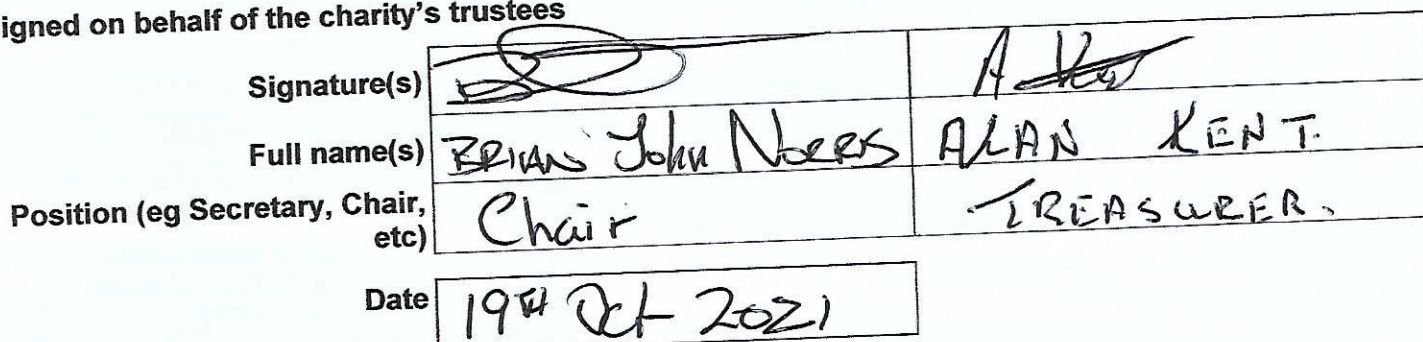 igned on behalf of the charity's trustees
Signature(s) A
Full name(s) BRIAN John NORRIS ALAN KENT.
Position (eg Secretary, Chair, Chair TREASURER.
etc)
Date 19TH Oct 2021